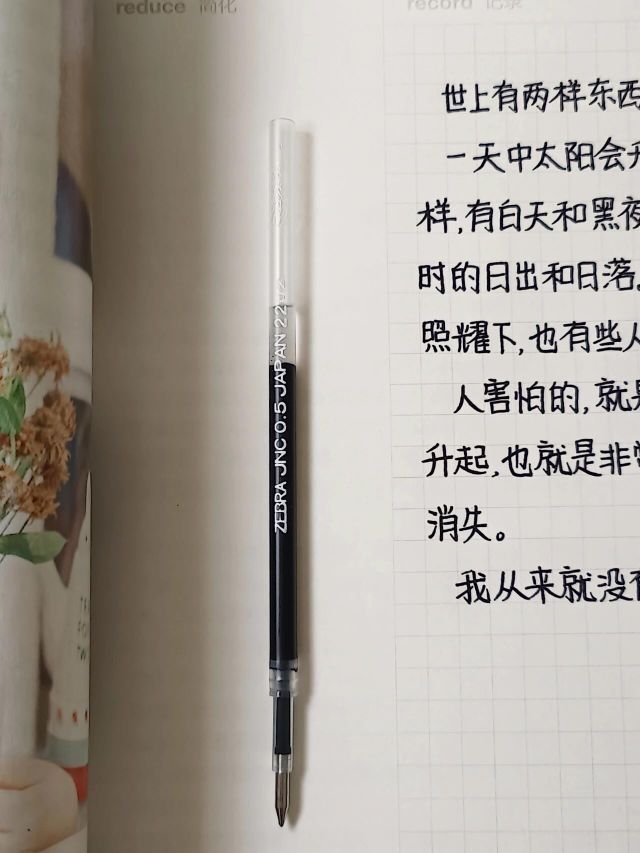 reduce 简化
record 记录
世上有两样东西
一天中太阳会升
样,有白天和黑夜
时的日出和日落。
照耀下,也有些人
人害怕的,就是
升起,也就是非常
消失。
我从来就没有
ZEBRA JNC 0.5 JAPAN 22